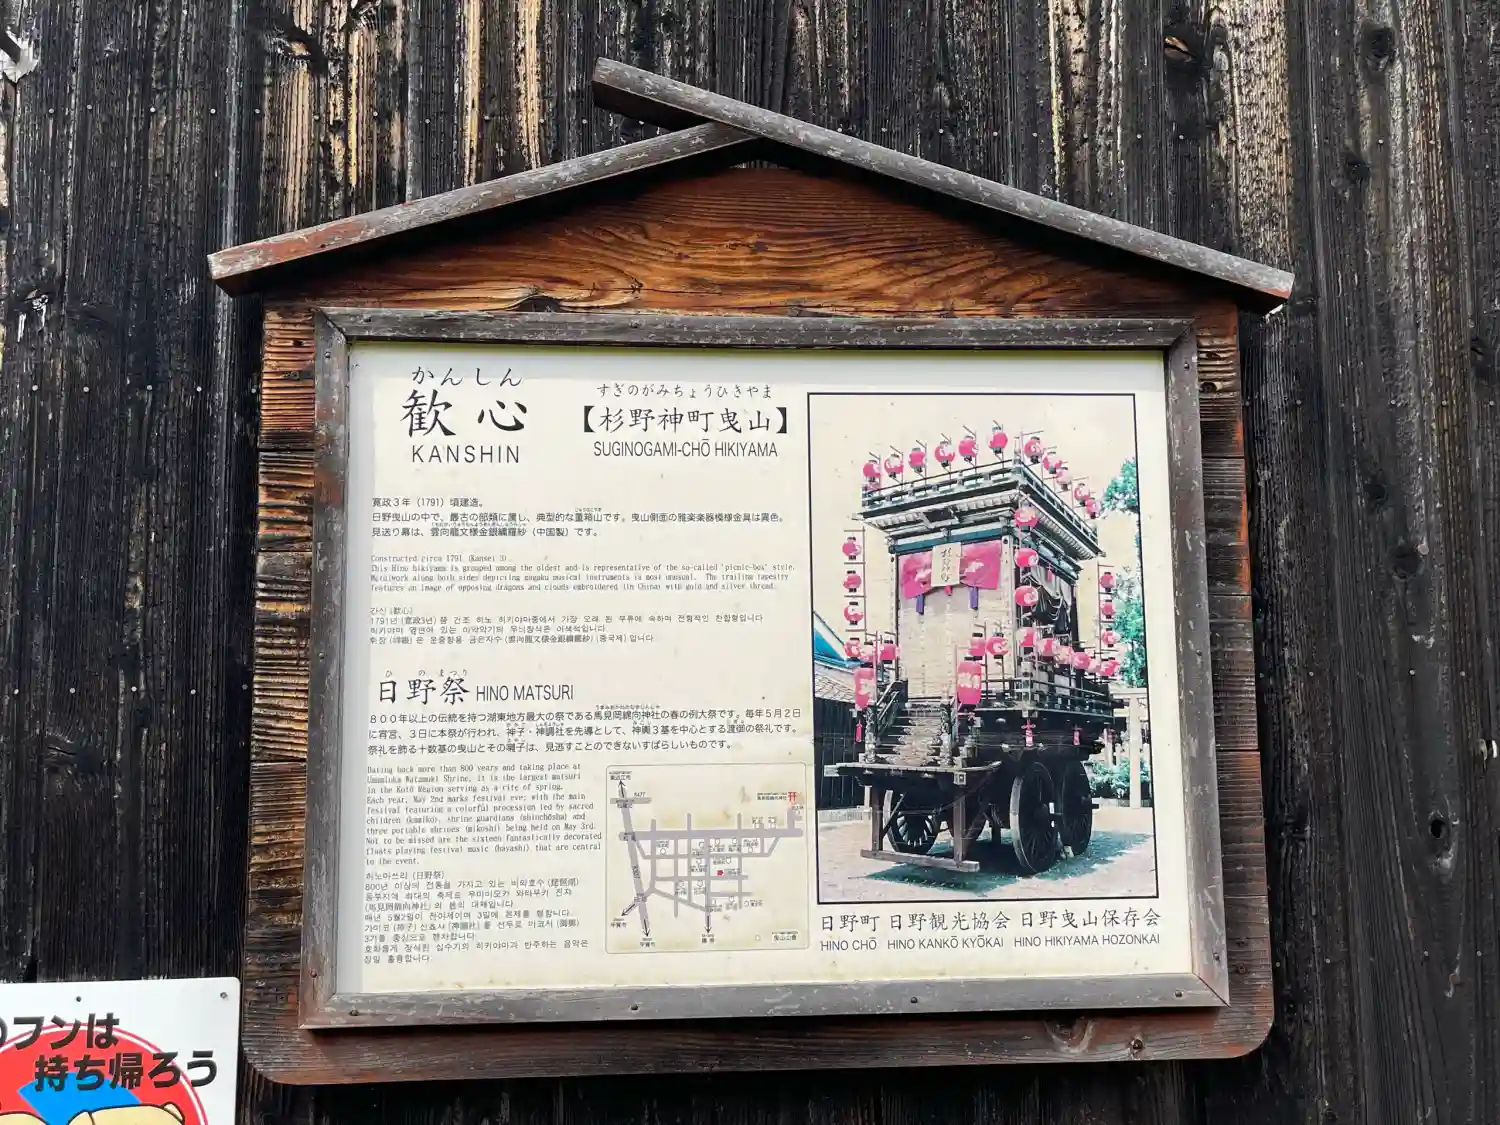 かんしん
歓心
KANSHIN
すぎのがみちょうひきやま
【杉野神町曳山】
SUGINOGAMI-CHŌ HIKIYAMA
寛政3年（1791）頃建造。
日野曳山の中で、最古の部類に属し、典型的な重箱山です。曳山側面の雅楽楽器模様金具は異色。
見送り幕は、雲向龍文様金銀繍羅紗（中国製）です。
Constructed circa 1791 (Kansei 3).
This Hino hikiyama is grouped among the oldest and is representative of the so-called 'picnic-box' style.
Metalwork along both sides depicting gagaku musical instruments is most unusual. The trailing tapestry
features an image of opposing dragons and clouds embroidered (in China) with gold and silver thread.
간신 (歓心)
1791년 (寛政3년) 쯤 건조 히노 히키야마중에서 가장 오래 된 부류에 속하며 전형적인 찬합형입니다
ひのまつり
日野祭 HINO MATSURI
８００年以上の伝統を持つ湖東地方最大の祭である馬見岡綿向神社の春の例大祭です。毎年５月２日
に宵宮、３日に本祭が行われ、神子・神調社を先導として、神輿３基を中心とする渡御の祭礼です。
祭礼を飾る十数基の曳山とその囃子は、見逃すことのできないすばらしいものです。
Dating back more than 800 years and taking place at
Umamioka Watamuki Shrine, it is the largest matsuri
in the Kotō Region serving as a rite of spring.
Each year, May 2nd marks festival eve; with the main
festival featuring a colorful procession led by sacred
children (kamiko), shrine guardians (shinchōsha) and
three portable shrines (mikoshi) being held on May 3rd.
Not to be missed are the sixteen fantastically decorated
floats playing festival music (hayashi) that are central
to the event.
히노마쓰리 (日野祭)
800년 이상의 전통을 가지고 있는 비와호수 (琵琶湖)
(馬見岡綿向神社) 의 봄의 대제입니다.
매년 5월2일이 전야제이며 3일에 본제를 행합니다.
3기를 중심으로 행차합니다.
호화롭게 장식된 십수기의 히키야마과 반주하는 음악은
정말 훌륭합니다.
日野町 日野観光協会 日野曳山保存会
HINO CHŌ HINO KANKŌ KYŌKAI HINO HIKIYAMA HOZONKAI
フンは
持ち帰ろう